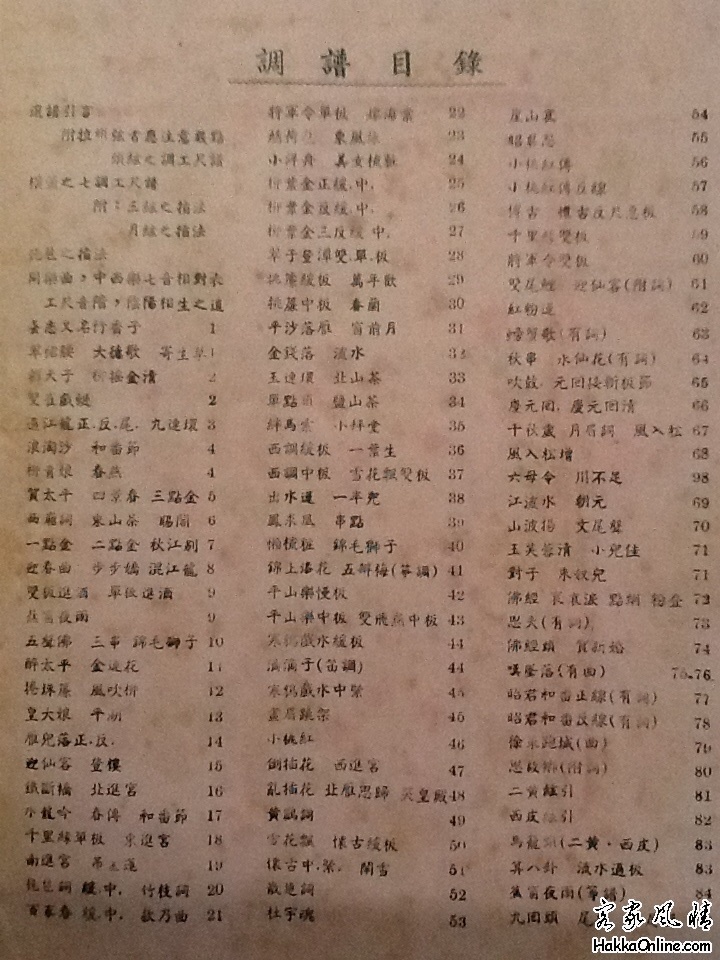 調譜目錄
選譜引言
附
弦之調工尺譜
之七調工尺譜
附:三絃之指法
月絃之指法
琵琶之指法
同樂曲,中西樂七音相對表
工尺音階,陰陽相生之道
又名行番子 1
大德歌 寄生草 1
柳搖金 2
雙 戲 2
過江龍正.反.尾. 九連環 3
浪淘沙 和番節 4
柳青娘 春燕 4
賀太平 四景春 三點金 5
西廂詞 東山茶 6
一點金 二點金 秋江別 7
迎春曲 步步嬌 混江龍 8
雙板進酒 單板進酒 9
蕉窗夜雨 9
五聲佛 三串 錦毛獅子 10
醉太平 金蓮花 11
捲珠簾 風吹 12
皇大娘 平湖 13
雁兒落正.反. 14
迎仙客 登樓 15
鐵斷橋 北進宮 16
小龍吟 春傳 和番節 17
千里緣單板 東進宮 18
南進宮 吊 19
琵琶詞 緩.中. 竹枝詞 20
百家春 緩.中. 欸乃曲 21
將軍令單板 海棠 22
東風 23
小 舟 美女梳 24
柳葉金正緩.中. 25
柳葉金反緩.中. 26
柳葉金三反緩.中. 27
翠子登潭雙.單.板 28
挑簾緩板 萬年歡 29
挑簾中板 春蘭 30
平沙落雁 窗前月 31
金錢落 流水 32
玉連環 北山茶 33
單點 鹽山茶 34
絆馬索 小 堂 35
西調緩板 一葉生 36
西調中板 雪花飄雙板 37
出水蓮 一半兒 38
鳳求凰 串點 39
懶梳粧 錦毛獅子 40
錦上添花 五瓣梅(箏調) 41
平山樂慢板 42
平山樂中板 雙飛燕中板 43
寒鴉戲水緩板 44
滴滴子(笛調) 44
寒鴉戲水中緊 45
畫眉跳架 45
小桃紅 46
倒插花 西進宮 47
亂插花 北雁思歸 天皇殿 48
黃鸝詞 49
雪花飄 懷古緩板 50
懷古中.緊. 鬧雪 51
散 詞 52
杜宇魂 53
崖山哀 54
昭君怨 55
小桃紅傳 56
小桃紅傳反線 57
博古 懷古反尺急板 58
千里緣雙板 59
將軍令雙板 60
雙尾鯉 迎仙客(附詞) 61
紅粉蓮 62
螃蟹歌(有詞) 63
秋串 水仙花(有詞) 64
吹鼓 元回接新板節 65
慶元回.慶元回清 66
千秋歲 月眉詞 風入松 67
風入松增 68
六毋令 川不足 98
江流水 朝元 69
山波 文尾聲 70
玉芙蓉清 小兒佳 71
對子 朱奴兒 71
佛經 長 派 點絳 粉 72
思夫(有詞) 73
佛經頭 賀新婚 74
嘆 落(有曲) 75.76
昭君和番正線(有詞) 77
昭君和番反線(有詞) 78
徐 跑城(曲) 79
思故鄉(附詞) 80
二黃絃引 81
西皮絃引 82
烏龍 (二黃.西皮) 83
算八卦 流水過板 83
蕉窗夜雨(箏譜) 84
九回頭 尾
客家風情
HakkaOnline.com